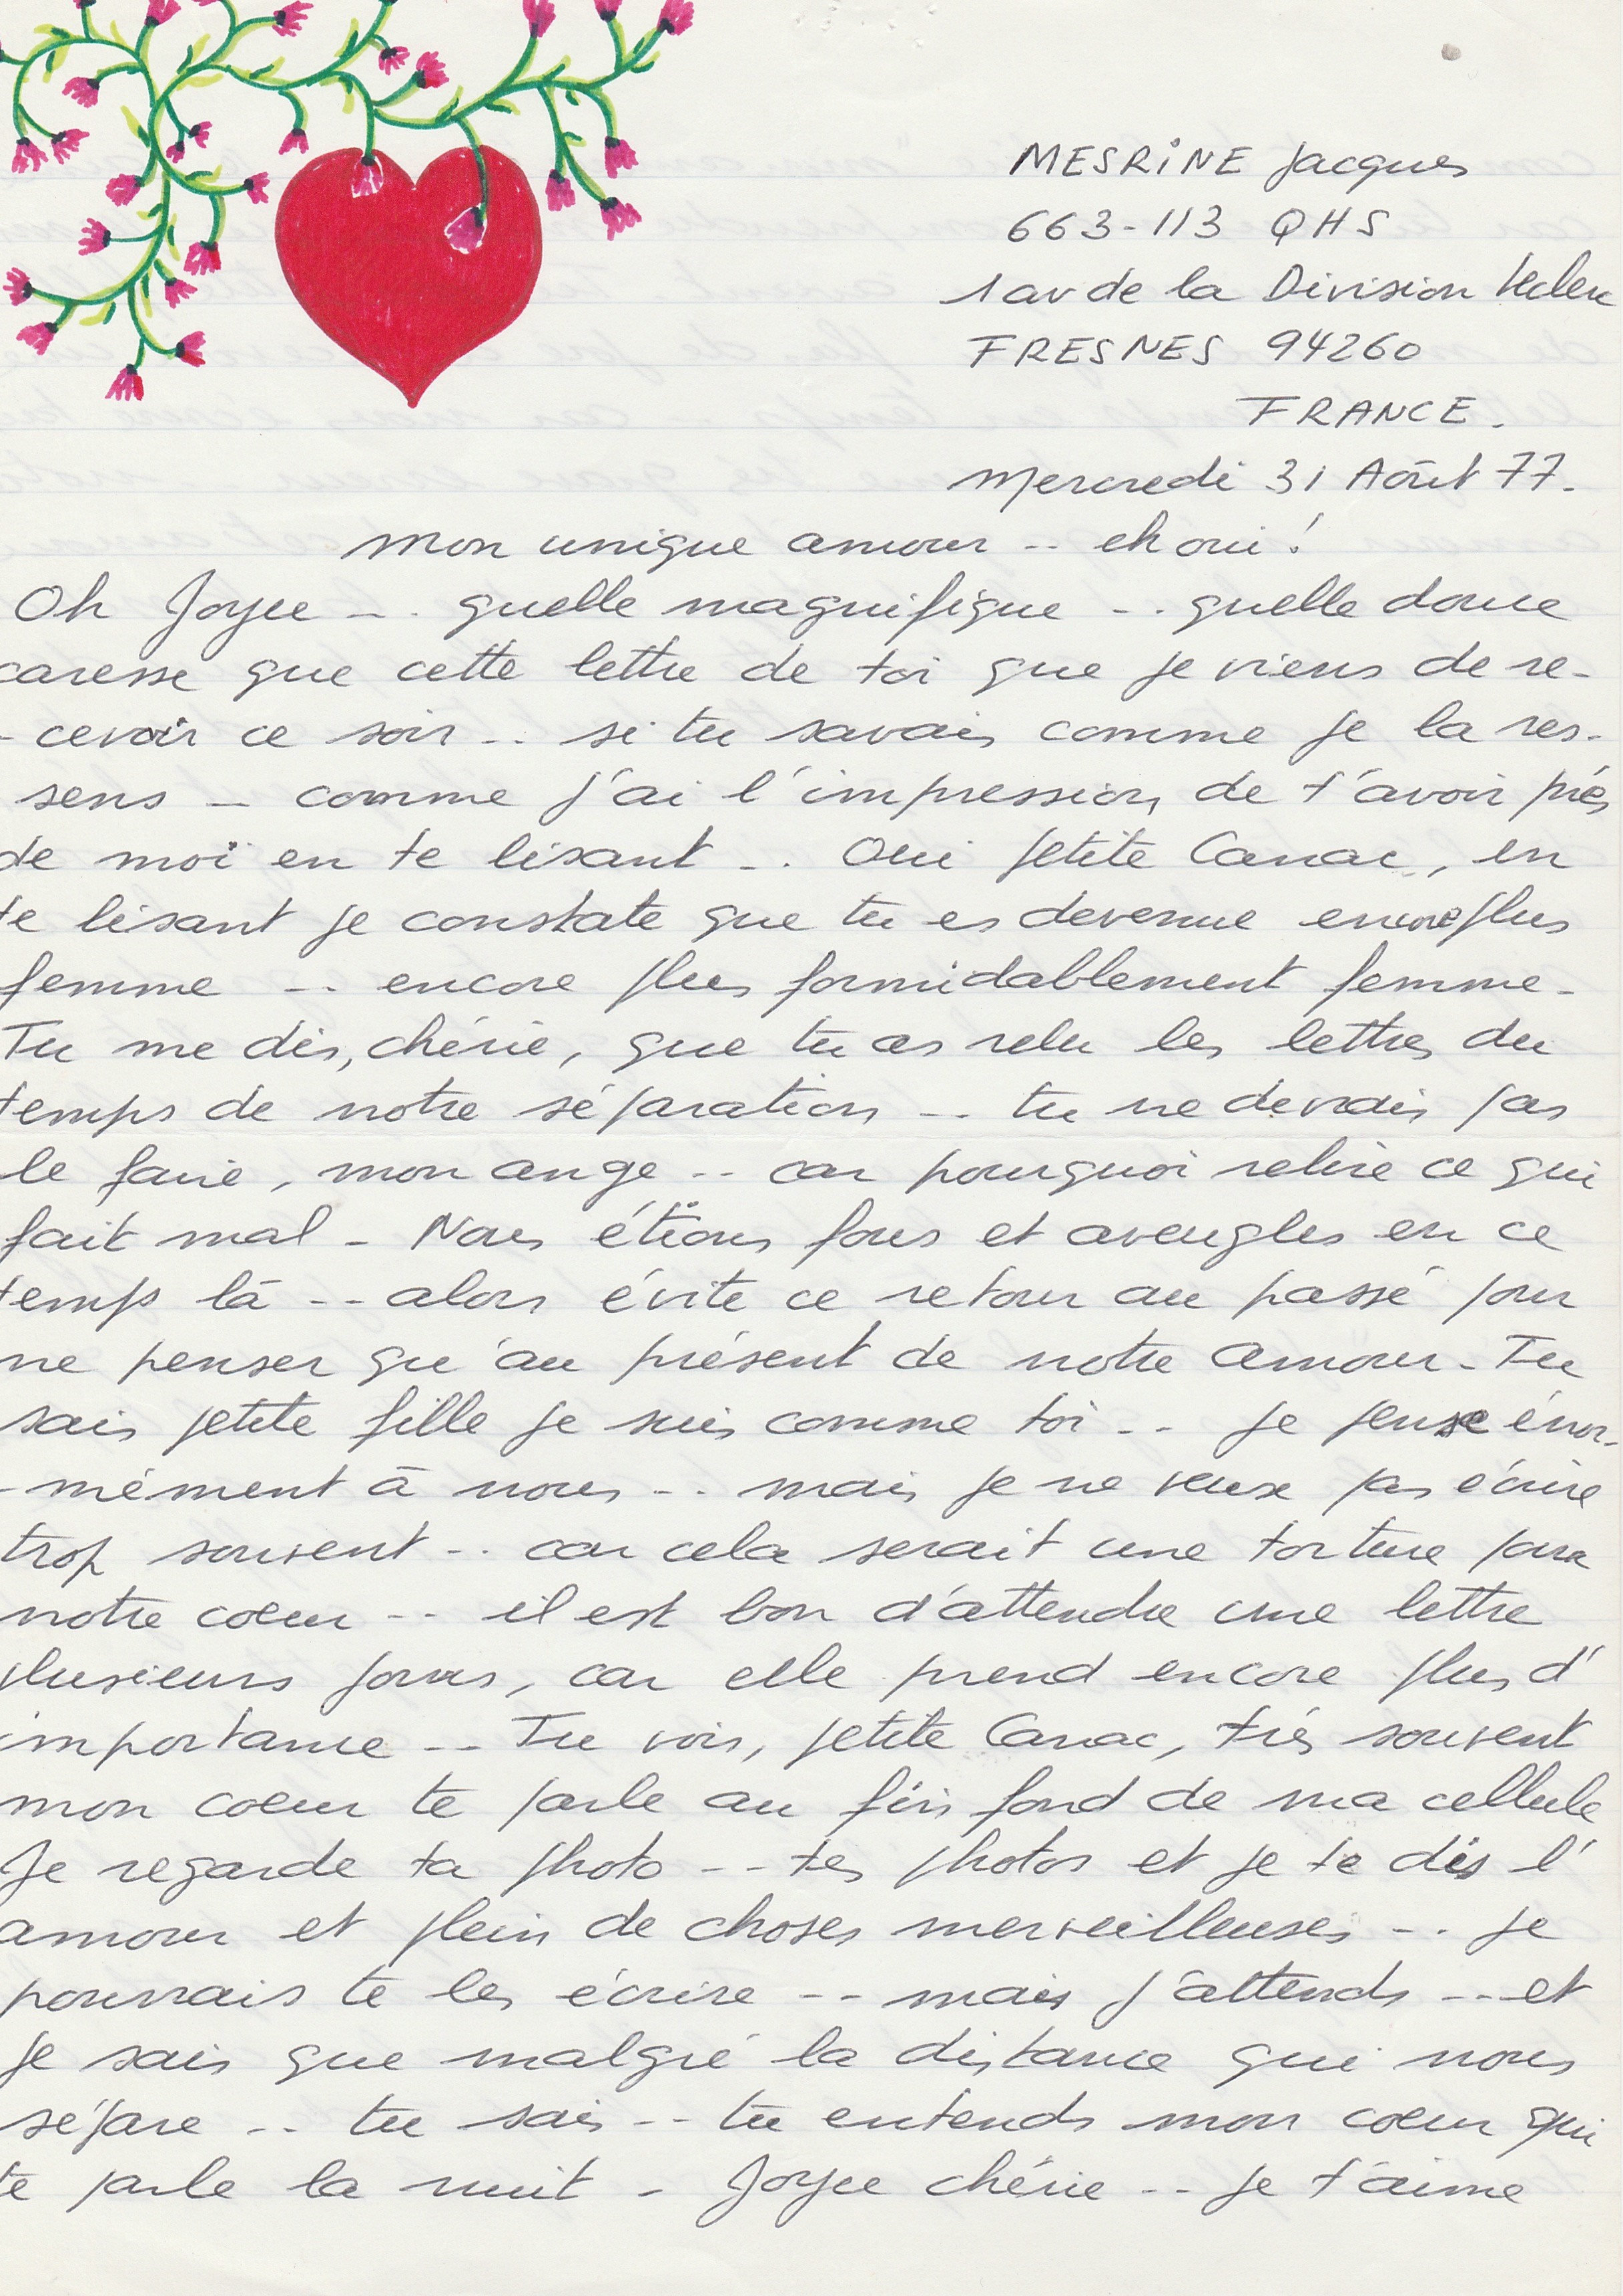 MESRINE Jacques
663-113 QHS
1 av de la Division Leclerc
FRESNES 94260
FRANCE.
Mercredi 31 Août 77.
mon unique amour -- eh oui !
Oh Joyce -- quelle magnifique -- quelle douce
caresse que cette lettre de toi que je viens de re-
-cevoir ce soir -- si tu savais comme je la res-
sens -- comme j'ai l'impression de t'avoir près
de moi en te lisant -- Oui petite Canac, en
te lisant je constate que tu es devenue encore plus
femme -- encore plus formidablement femme -
Tu me dis, chérie, que tu as relu les lettres du
temps de notre séparation -- tu ne devrais pas
le faire, mon ange -- car pourquoi relire ce qui
fait mal - Nous étions fous et aveugles en ce
temps là -- alors évite ce retour au passé pour
ne penser qu'au présent de notre amour - Tu
sais petite fille je suis comme toi -- je pense énor-
-mément à nous -- mais je ne veux pas écrire
trop souvent -- car cela serait une torture pour
notre coeur -- il est bon d'attendre une lettre
plusieurs jours, car elle prend encore plus d'
importance -- Tu vois, petite Canac, très souvent
mon coeur te parle au fin fond de ma cellule
Je regarde ta photo -- tes photos et je te dis l'
amour et plein de choses merveilleuses -- je
pourrais te les écrire -- mais j'attends -- et
je sais que malgré la distance qui nous
sépare -- tu sais -- tu entends mon coeur qui
te parle la nuit - Joyce chérie -- je t'aime